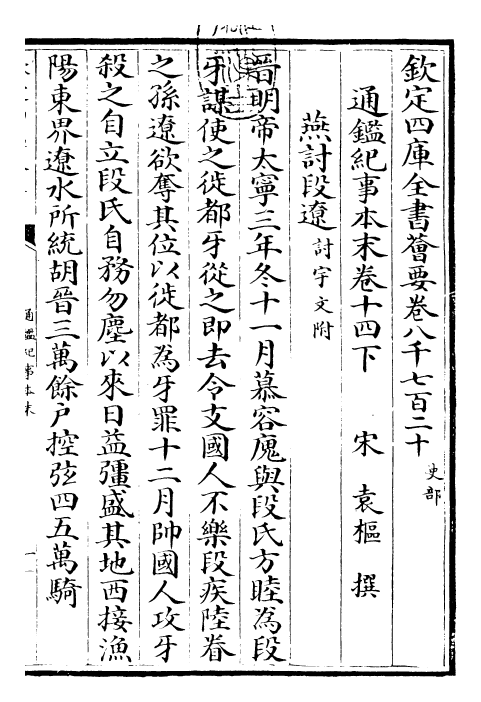 欽定四庫全書薈要卷八千七百二十 史部
通鑑紀事本末卷十四下 宋 袁樞 撰
燕討段遼 討宇文附
晉明帝太寧三年冬十一月慕容廆與段氏方睦為段
牙謀使之徙都牙從之即去令支國人不樂段疾陸眷
之孫遼欲奪其位以徙都為牙罪十二月帥國人攻牙
殺之自立段氏自務勿塵以來日益彊盛其地西接漁
陽東界遼水所統胡晉三萬餘戶控弦四五萬騎
通鑑紀事本末
一